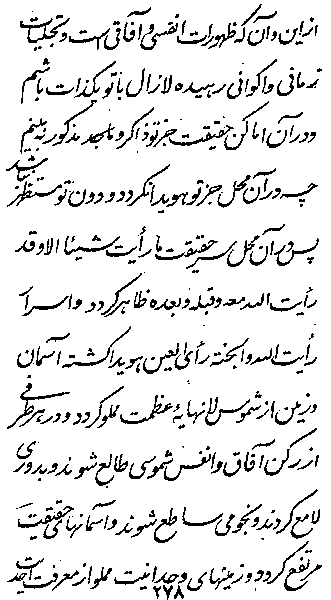 از این و آن که ظهورات انفسی و آفاقی است و تجلیات
زمانی و اکوانی رهیده لازال با تو یکذات باشم
و در آن اماکن حقیقت جز تو ذاکر و ماسجد مذکور نه بینم
چه در آن محل جز تو هویدا نگردد و دون تو مستظهر نباشد
پس در آن محل سر حقیقت ما رأیت شیئا الا و قد
رأیت الله معه و قبله و بعده ظاهر گردد و اسرار
رأیت الله و الجنة رأی العین هویدا گشته آسمان
و زمین از شموس لانهایهٔ عظمت مملو گردد و در هر طرفی
از رکن آفاق و انفس شموسی طالع شوند و بدوری
لامع گردند و نجومی ساطع شوند و آسمانهای حقیقت
مرتفع گردد و زمینهای وحدانیت مملو از معرفت احدیت
۲۷۸